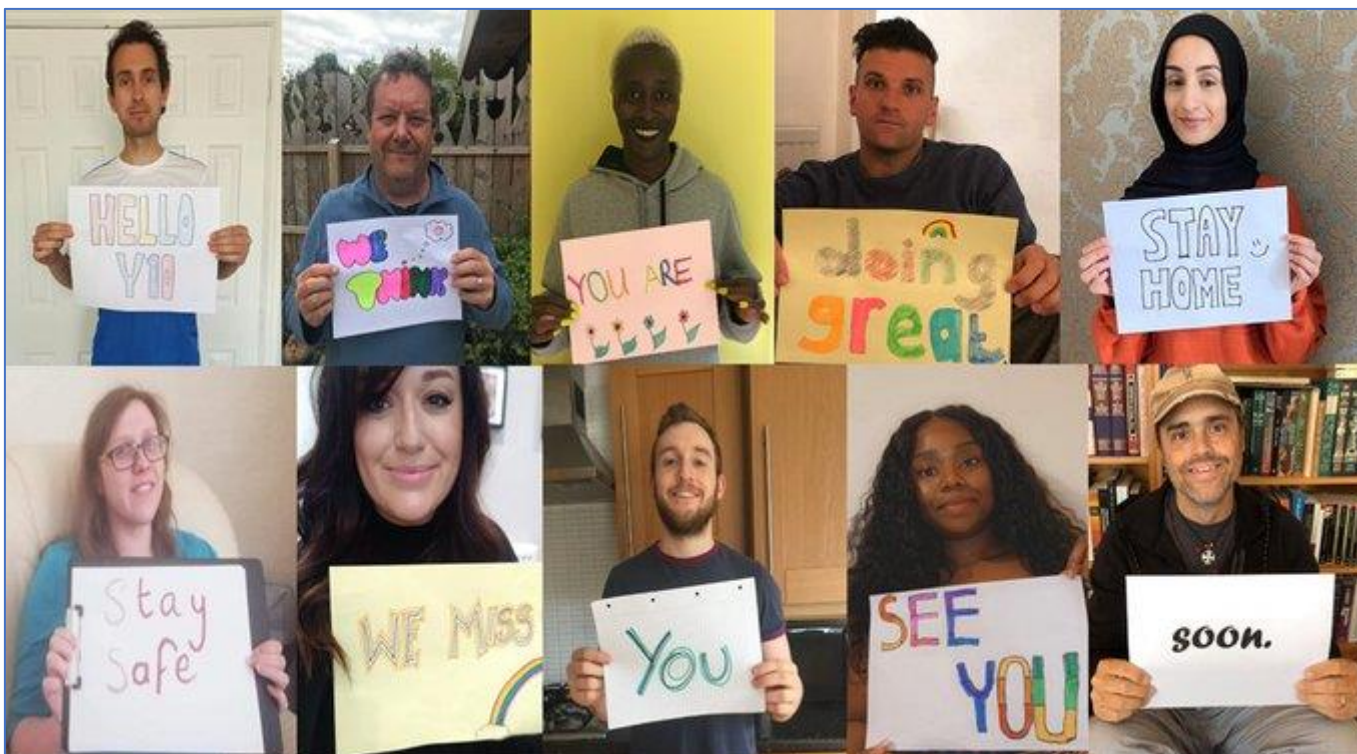 HELLO
Y10
WE
THINK
YOU ARE
doing
great
STAY
HOME
Stay
Safe
WE MISS
YOU
SEE
YOU
soon.